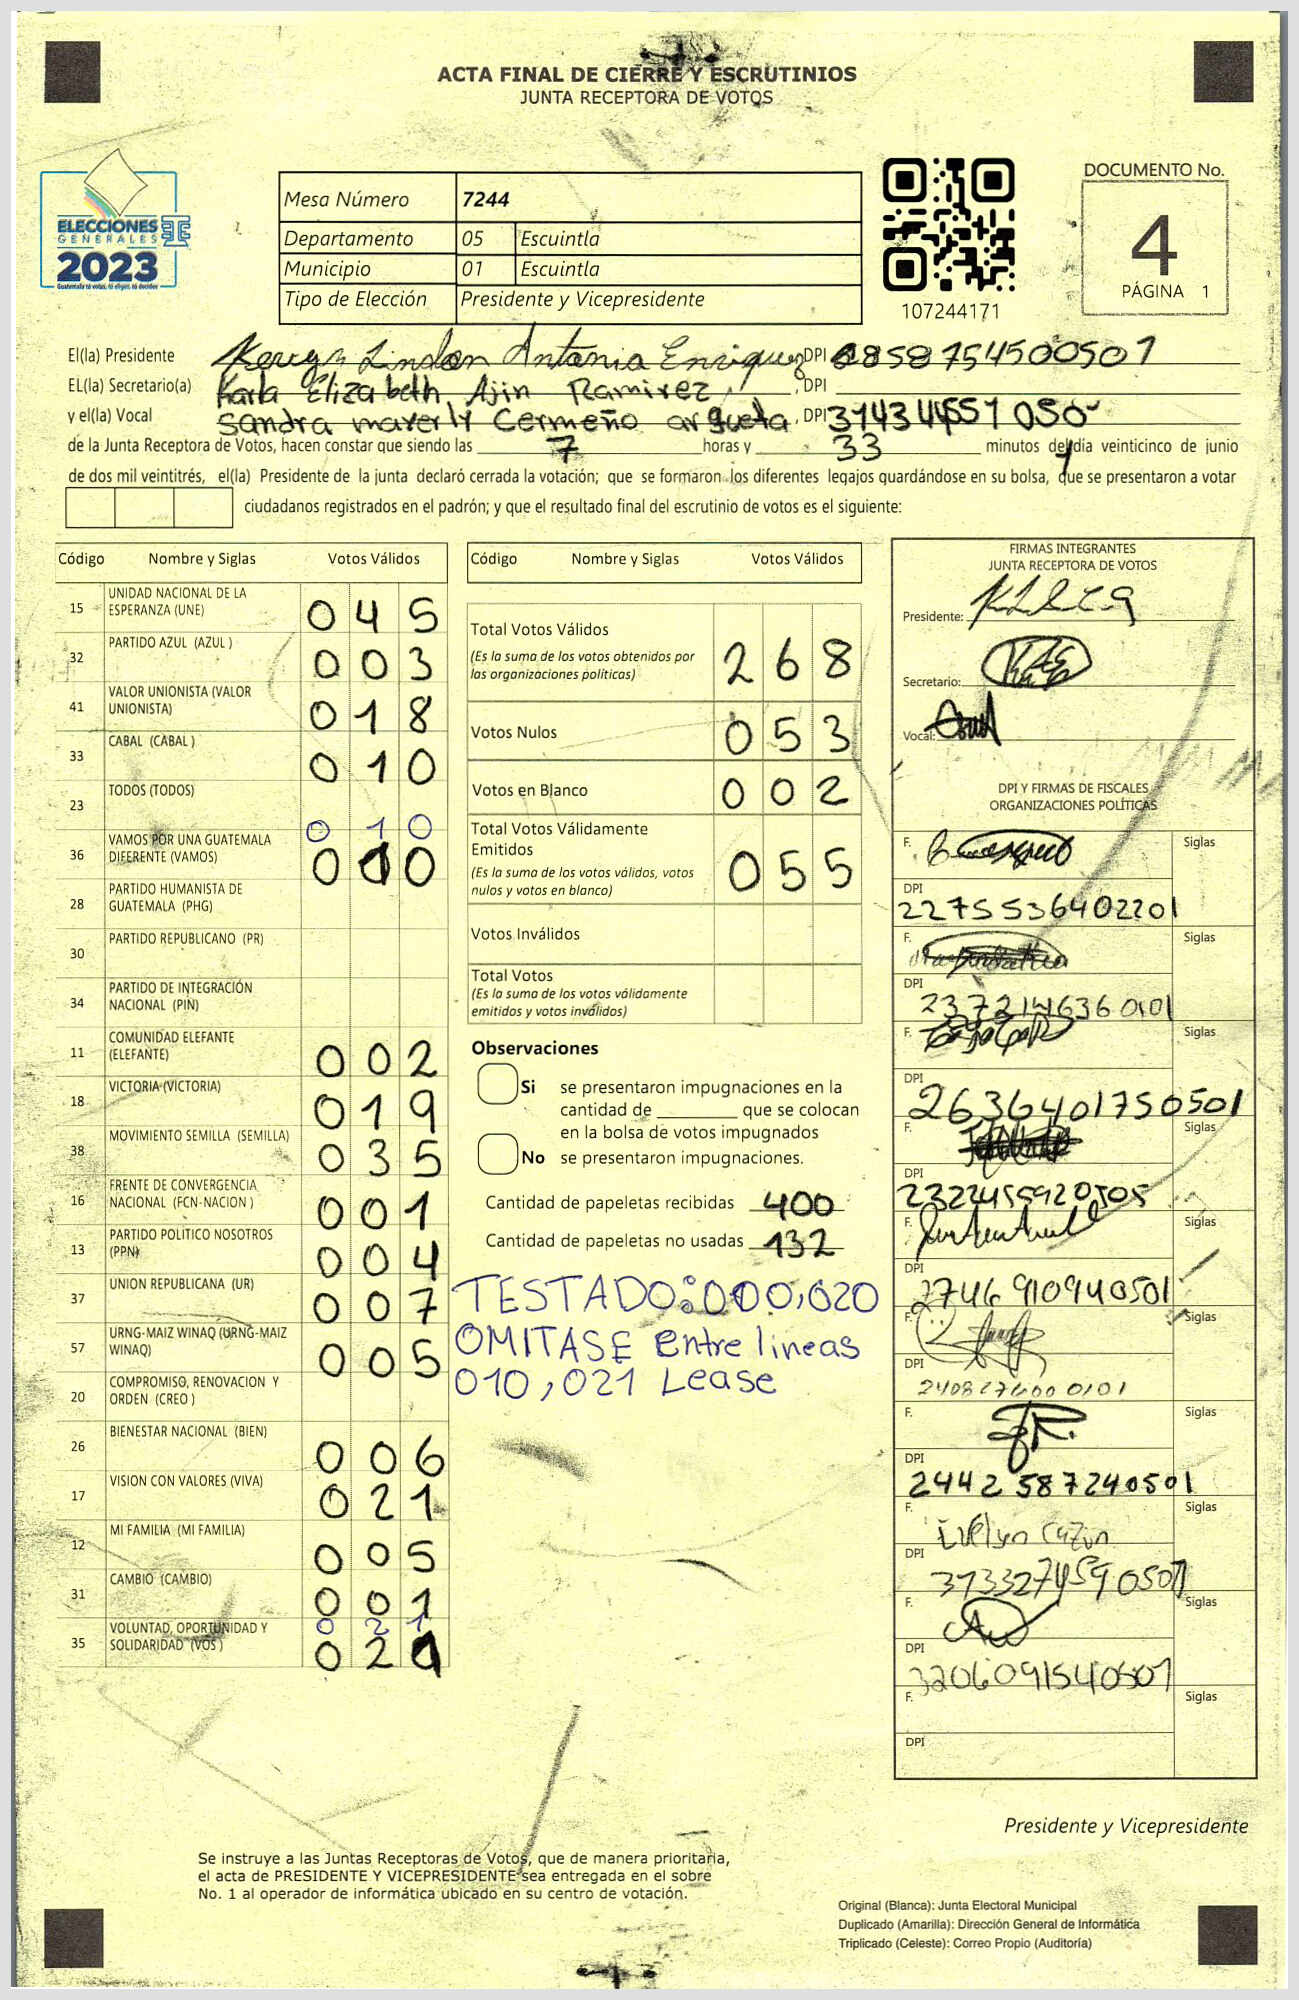 ACTA FINAL DE CIERRE Y ESCRUTINIOS
JUNTA RECEPTORA DE VOTOS
ELECCIONES
GENERALES
2023
Guatemala tú votas, tú eliges, tú decides
Mesa Número 7244
Departamento 05 Escuintla
Municipio 01 Escuintla
Tipo de Elección Presidente y Vicepresidente
107244171
DOCUMENTO No.
4
PÁGINA 1
El(la) Presidente Lindon Antonio Enriquez DPI 2858754500501
EL(la) Secretario(a) Karla Elizabeth Ajin Ramirez, DPI
y el(la) Vocal Sandra mayerly Cermeño argueta, DPI
de la Junta Receptora de Votos, hacen constar que siendo las 7 horas y 33 minutos del día veinticinco de junio
de dos mil veintitrés, el(la) Presidente de la junta declaró cerrada la votación; que se formaron los diferentes legajos quardándose en su bolsa, que se presentaron a votar
ciudadanos registrados en el padrón; y que el resultado final del escrutinio de votos es el siguiente:
Código Nombre y Siglas Votos Válidos
15 UNIDAD NACIONAL DE LA ESPERANZA (UNE) 045
32 PARTIDO AZUL (AZUL ) 003
41 VALOR UNIONISTA (VALOR UNIONISTA) 018
33 CABAL (CABAL ) 010
23 TODOS (TODOS)
010
36 VAMOS POR UNA GUATEMALA DIFERENTE (VAMOS) 010
28 PARTIDO HUMANISTA DE GUATEMALA (PHG)
30 PARTIDO REPUBLICANO (PR)
34 PARTIDO DE INTEGRACIÓN NACIONAL (PIN)
11 COMUNIDAD ELEFANTE (ELEFANTE) 002
18 VICTORIA (VICTORIA) 019
38 MOVIMIENTO SEMILLA (SEMILLA) 035
16 FRENTE DE CONVERGENCIA NACIONAL (FCN-NACION ) 001
13 PARTIDO POLITICO NOSOTROS (PPN) 004
37 UNION REPUBLICANA (UR) 007
57 URNG-MAIZ WINAQ (URNG-MAIZ WINAQ) 005
20 COMPROMISO, RENOVACION Y ORDEN (CREO )
26 BIENESTAR NACIONAL (BIEN) 006
17 VISION CON VALORES (VIVA) 021
12 MI FAMILIA (MI FAMILIA) 005
31 CAMBIO (CAMBIO) 001
021
35 VOLUNTAD, OPORTUNIDAD Y SOLIDARIDAD (VOS ) 021
Código Nombre y Siglas Votos Válidos
Total Votos Válidos 268
(Es la suma de los votos obtenidos por
las organizaciones políticas)
Votos Nulos 053
Votos en Blanco 002
Total Votos Válidamente
Emitidos 055
(Es la suma de los votos válidos, votos
nulos y votos en blanco)
Votos Inválidos
Total Votos
(Es la suma de los votos válidamente
emitidos y votos inválidos)
Observaciones
Si se presentaron impugnaciones en la
cantidad de ________ que se colocan
en la bolsa de votos impugnados
No se presentaron impugnaciones.
Cantidad de papeletas recibidas 400
Cantidad de papeletas no usadas 132
TESTADO: 000,020
OMITASE Entre lineas
010,021 Lease
FIRMAS INTEGRANTES
JUNTA RECEPTORA DE VOTOS
Presidente:
Secretario:
Vocal:
DPI Y FIRMAS DE FISCALES
ORGANIZACIONES POLÍTICAS
F. Siglas
DPI
2275536402201
F. Siglas
DPI
F.
DPI
2636401750501
F. Siglas
DPI
F. Siglas
DPI
2746910940501
F. Siglas
DPI
F. Siglas
DPI
2442587240501
F. Evelyn Siglas
DPI
F. Siglas
DPI
3206091540501
F. Siglas
DPI
Presidente y Vicepresidente
Se instruye a las Juntas Receptoras de Votos, que de manera prioritaria,
el acta de PRESIDENTE Y VICEPRESIDENTE sea entregada en el sobre
No. 1 al operador de informática ubicado en su centro de votación.
Original (Blanca): Junta Electoral Municipal
Duplicado (Amarilla): Dirección General de Informática
Triplicado (Celeste): Correo Propio (Auditoría)